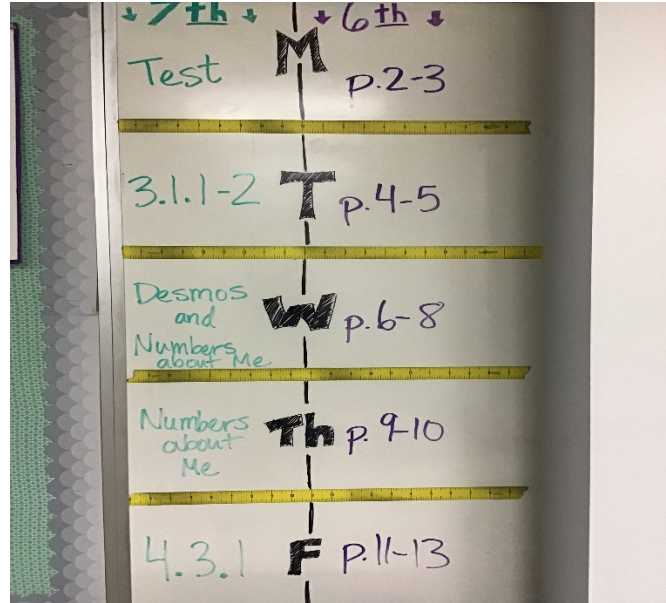 ↓ 7th ↓ ↓ 6th ↓
Test M p.2-3
3.1.1-2 T p.4-5
Desmos
and
Numbers
about Me
W p.6-8
Numbers
about
Me
Th p. 9-10
4.3.1 F p.11-13